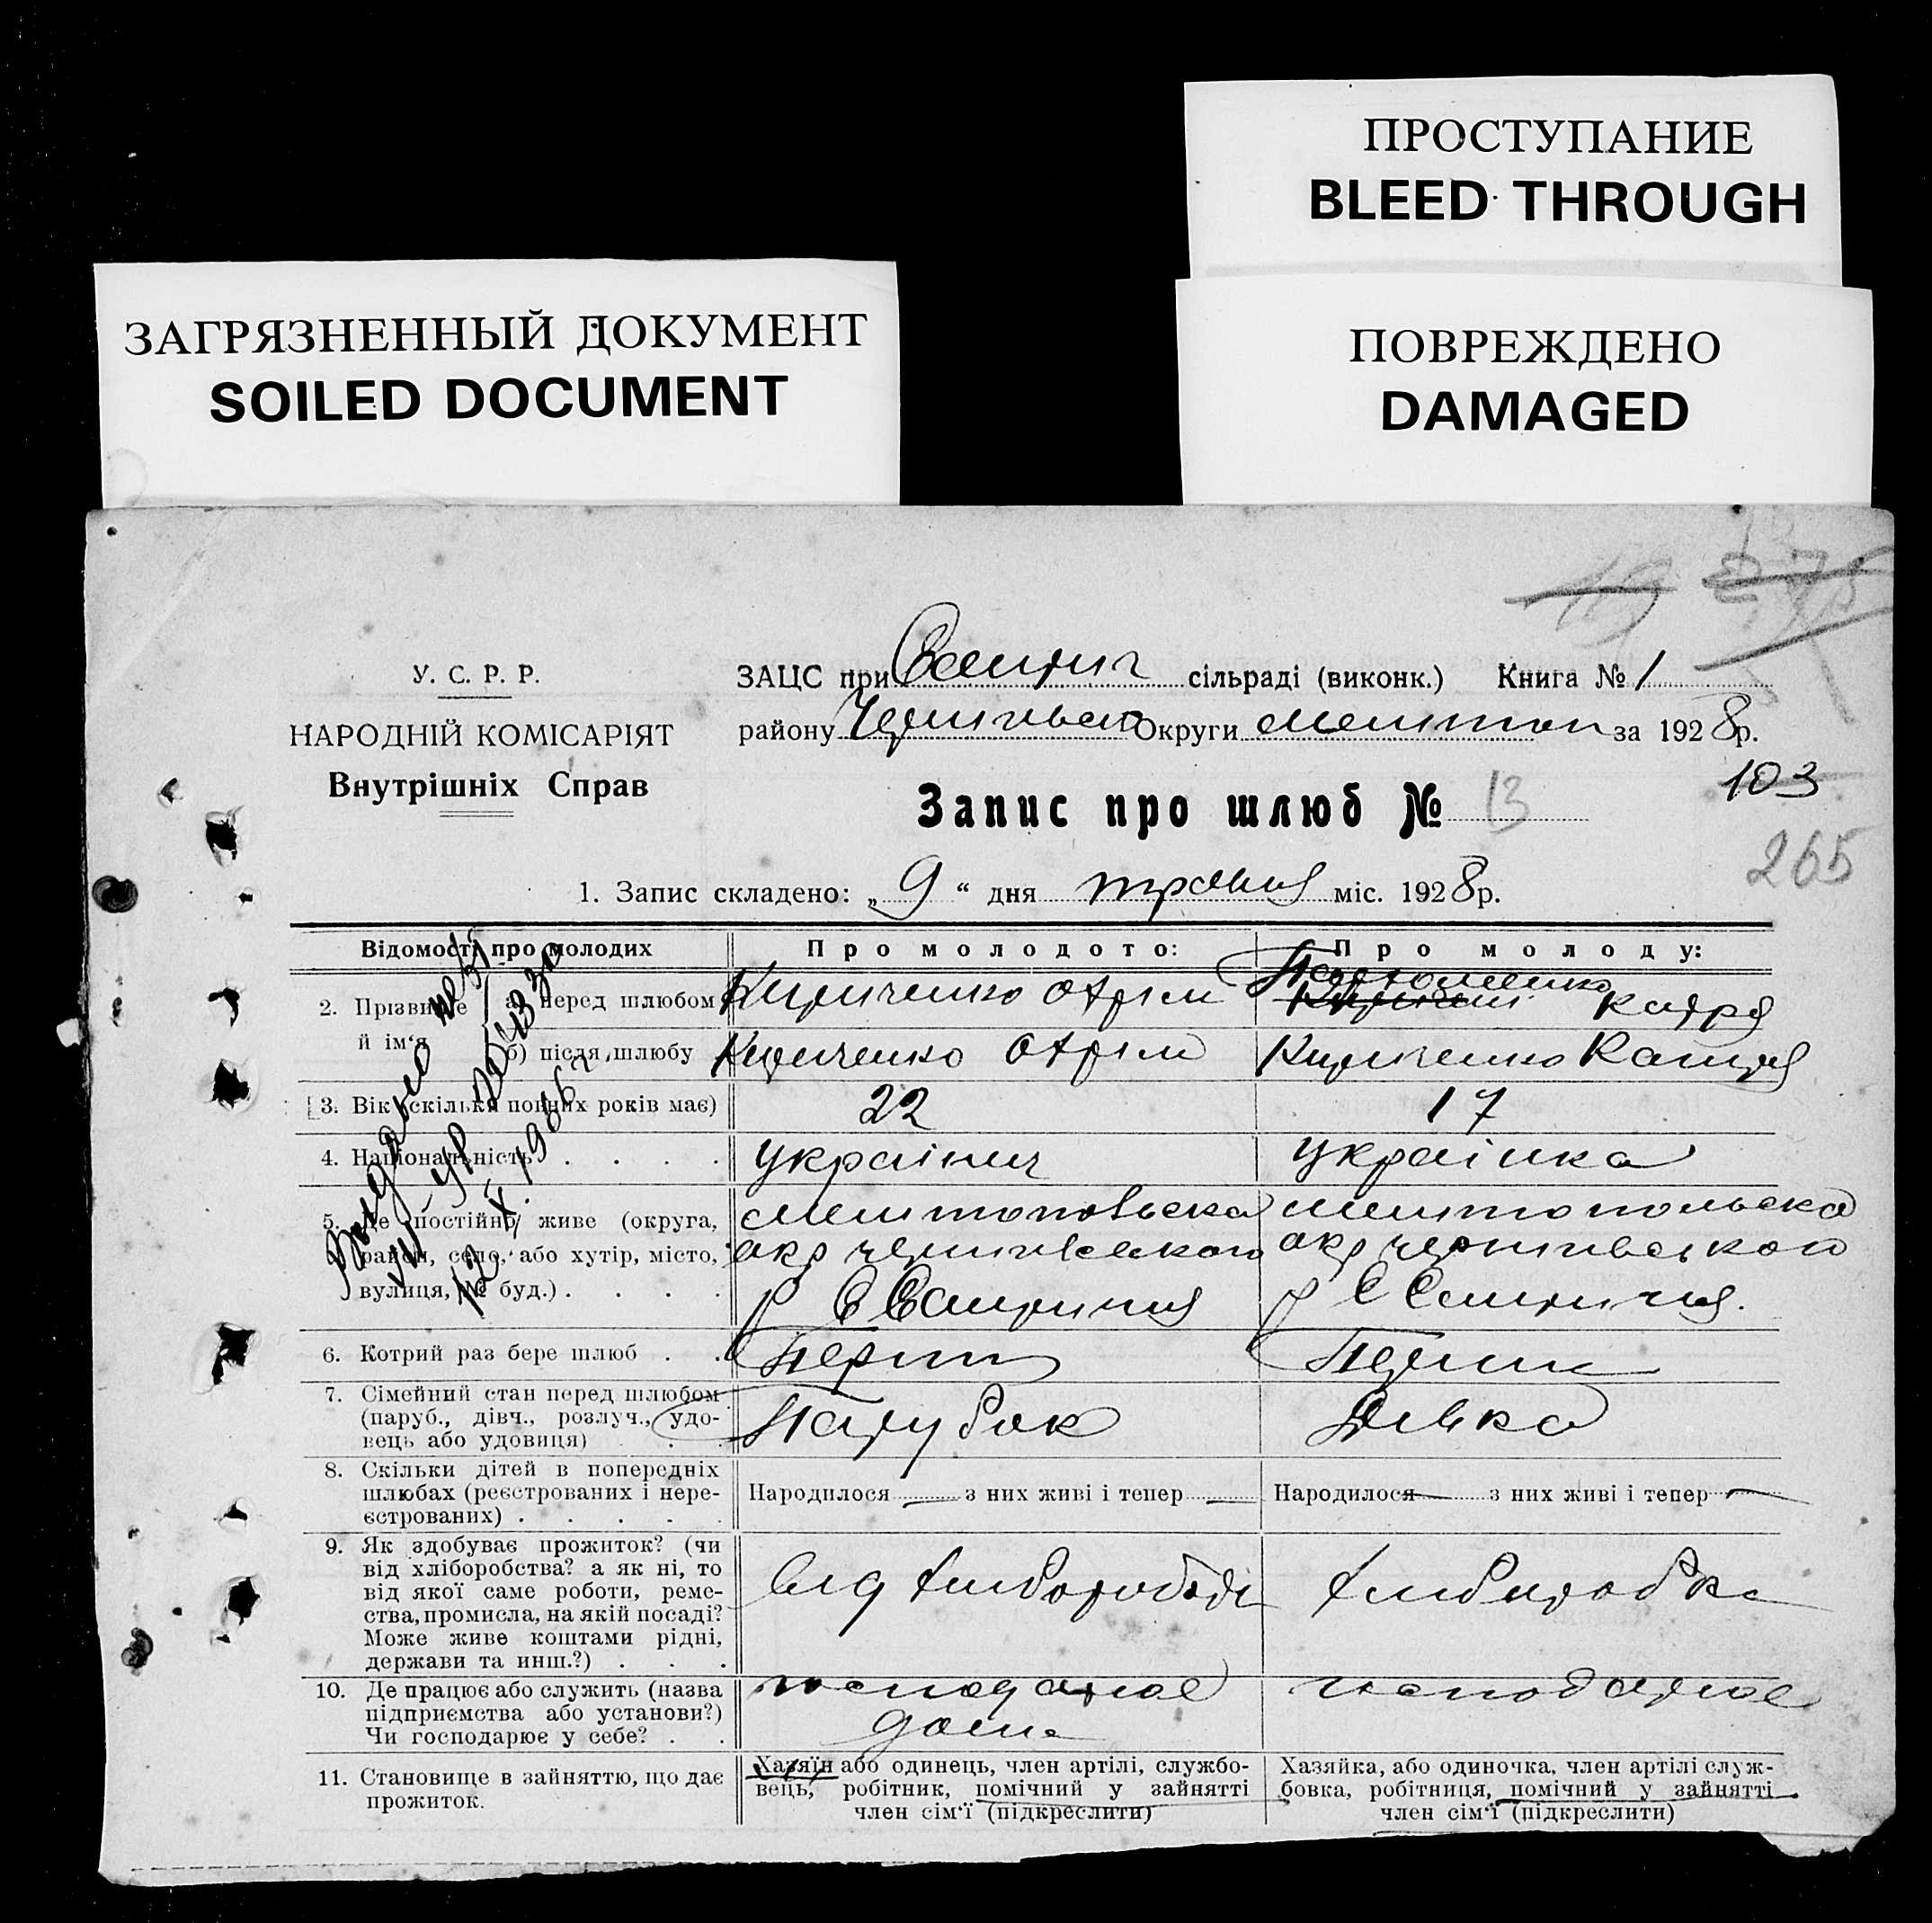 ПРОСТУПАНИЕ
BLEED THROUGH
ЗАГРЯЗНЕННЫЙ ДОКУМЕНТ
SOILED DOCUMENT
ПОВРЕЖДЕНО
DAMAGED
19 275
У. С. Р. Р.
НАРОДНІЙ КОМІСАРІЯТ
Внутрішніх Справ
ЗАЦС при сільраді (виконк.) Книга № 1
району Округи за 1928 р.
103
Запис про шлюб № 13
265
1. Запис складено: „ 9 “ дня травня міс. 1928 р.
Відомості про молодих Про молодого: Про молоду:
2. Прізвище й ім‘я
а) перед шлюбом Кириченко Охрім Катря
б) після шлюбу Кириченко Охрім Кириченко Катря
3. Вік (скільки повних років має) 22 17
4. Національність . . . . українич українка
5. Де постійно живе (округа, район, село, або хутір, місто, вулиця, № буд.) . . . .
мелитопольска
окр чернигвського
р С
мелитопольска
окр чернигвського
р С
6. Котрий раз бере шлюб . . Перший Перший
7. Сімейний стан перед шлюбом (паруб., дівч., розлуч., удовець або удовиця) . . . Парубок Дівка
8. Скільки дітей в попередніх шлюбах (реєстрованих і нереєстрованих) . . . . .
Народилося — з них живі і тепер —
Народилося — з них живі і тепер —
9. Як здобуває прожиток? (чи від хліборобства? а як ні, то від якої саме роботи, ремества, промисла, на якій посаді? Може живе коштами рідні, держави та инш.?) . . .
від
хлиборобка
10. Де працює або служить (назва підприємства або установи?) Чи господарює у себе? . .
господарює
дома
господарює
11. Становище в зайняттю, що дає прожиток.
Хазяїн або одинець, член артілі, службовець, робітник, помічний у зайнятті член сім‘ї (підкреслити)
Хазяйка, або одиночка, член артілі службовка, робітниця, помічний у зайнятті член сім‘ї (підкреслити)